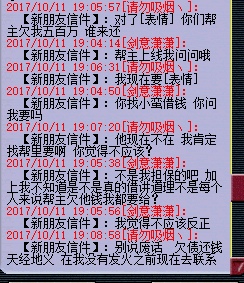 2017/10/11 19:05:57[请勿吸烟ヽ]:
【新朋友信件】: 对了[表情] 你们帮
主欠我五百万 谁来还
2017/10/11 19:04:14[剑意潇潇]:
【新朋友信件】: 帮主上线我问问哦
2017/10/11 19:06:31[请勿吸烟ヽ]:
【新朋友信件】: 我现在要[表情]
2017/10/11 19:04:50[剑意潇潇]:
【新朋友信件】: 你我小蛮借钱 你问
我要吗
2017/10/11 19:07:20[请勿吸烟ヽ]:
【新朋友信件】: 他现在不在 我肯定
找帮里要啊 你觉得不应该?
2017/10/11 19:05:38[剑意潇潇]:
【新朋友信件】: 不是我担保的吧 加
上我不知道是不是真的借讲道理不是每个
人来说帮主欠他钱我都要给?
2017/10/11 19:05:56[剑意潇潇]:
【新朋友信件】: 我觉得不应该反正
2017/10/11 19:08:58[请勿吸烟ヽ]:
【新朋友信件】: 别说废话 欠债还钱
天经地义 在我没有发火之前现在去联系